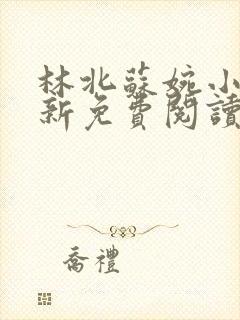 林北蘇婉小
新免費閱讀
喬禮